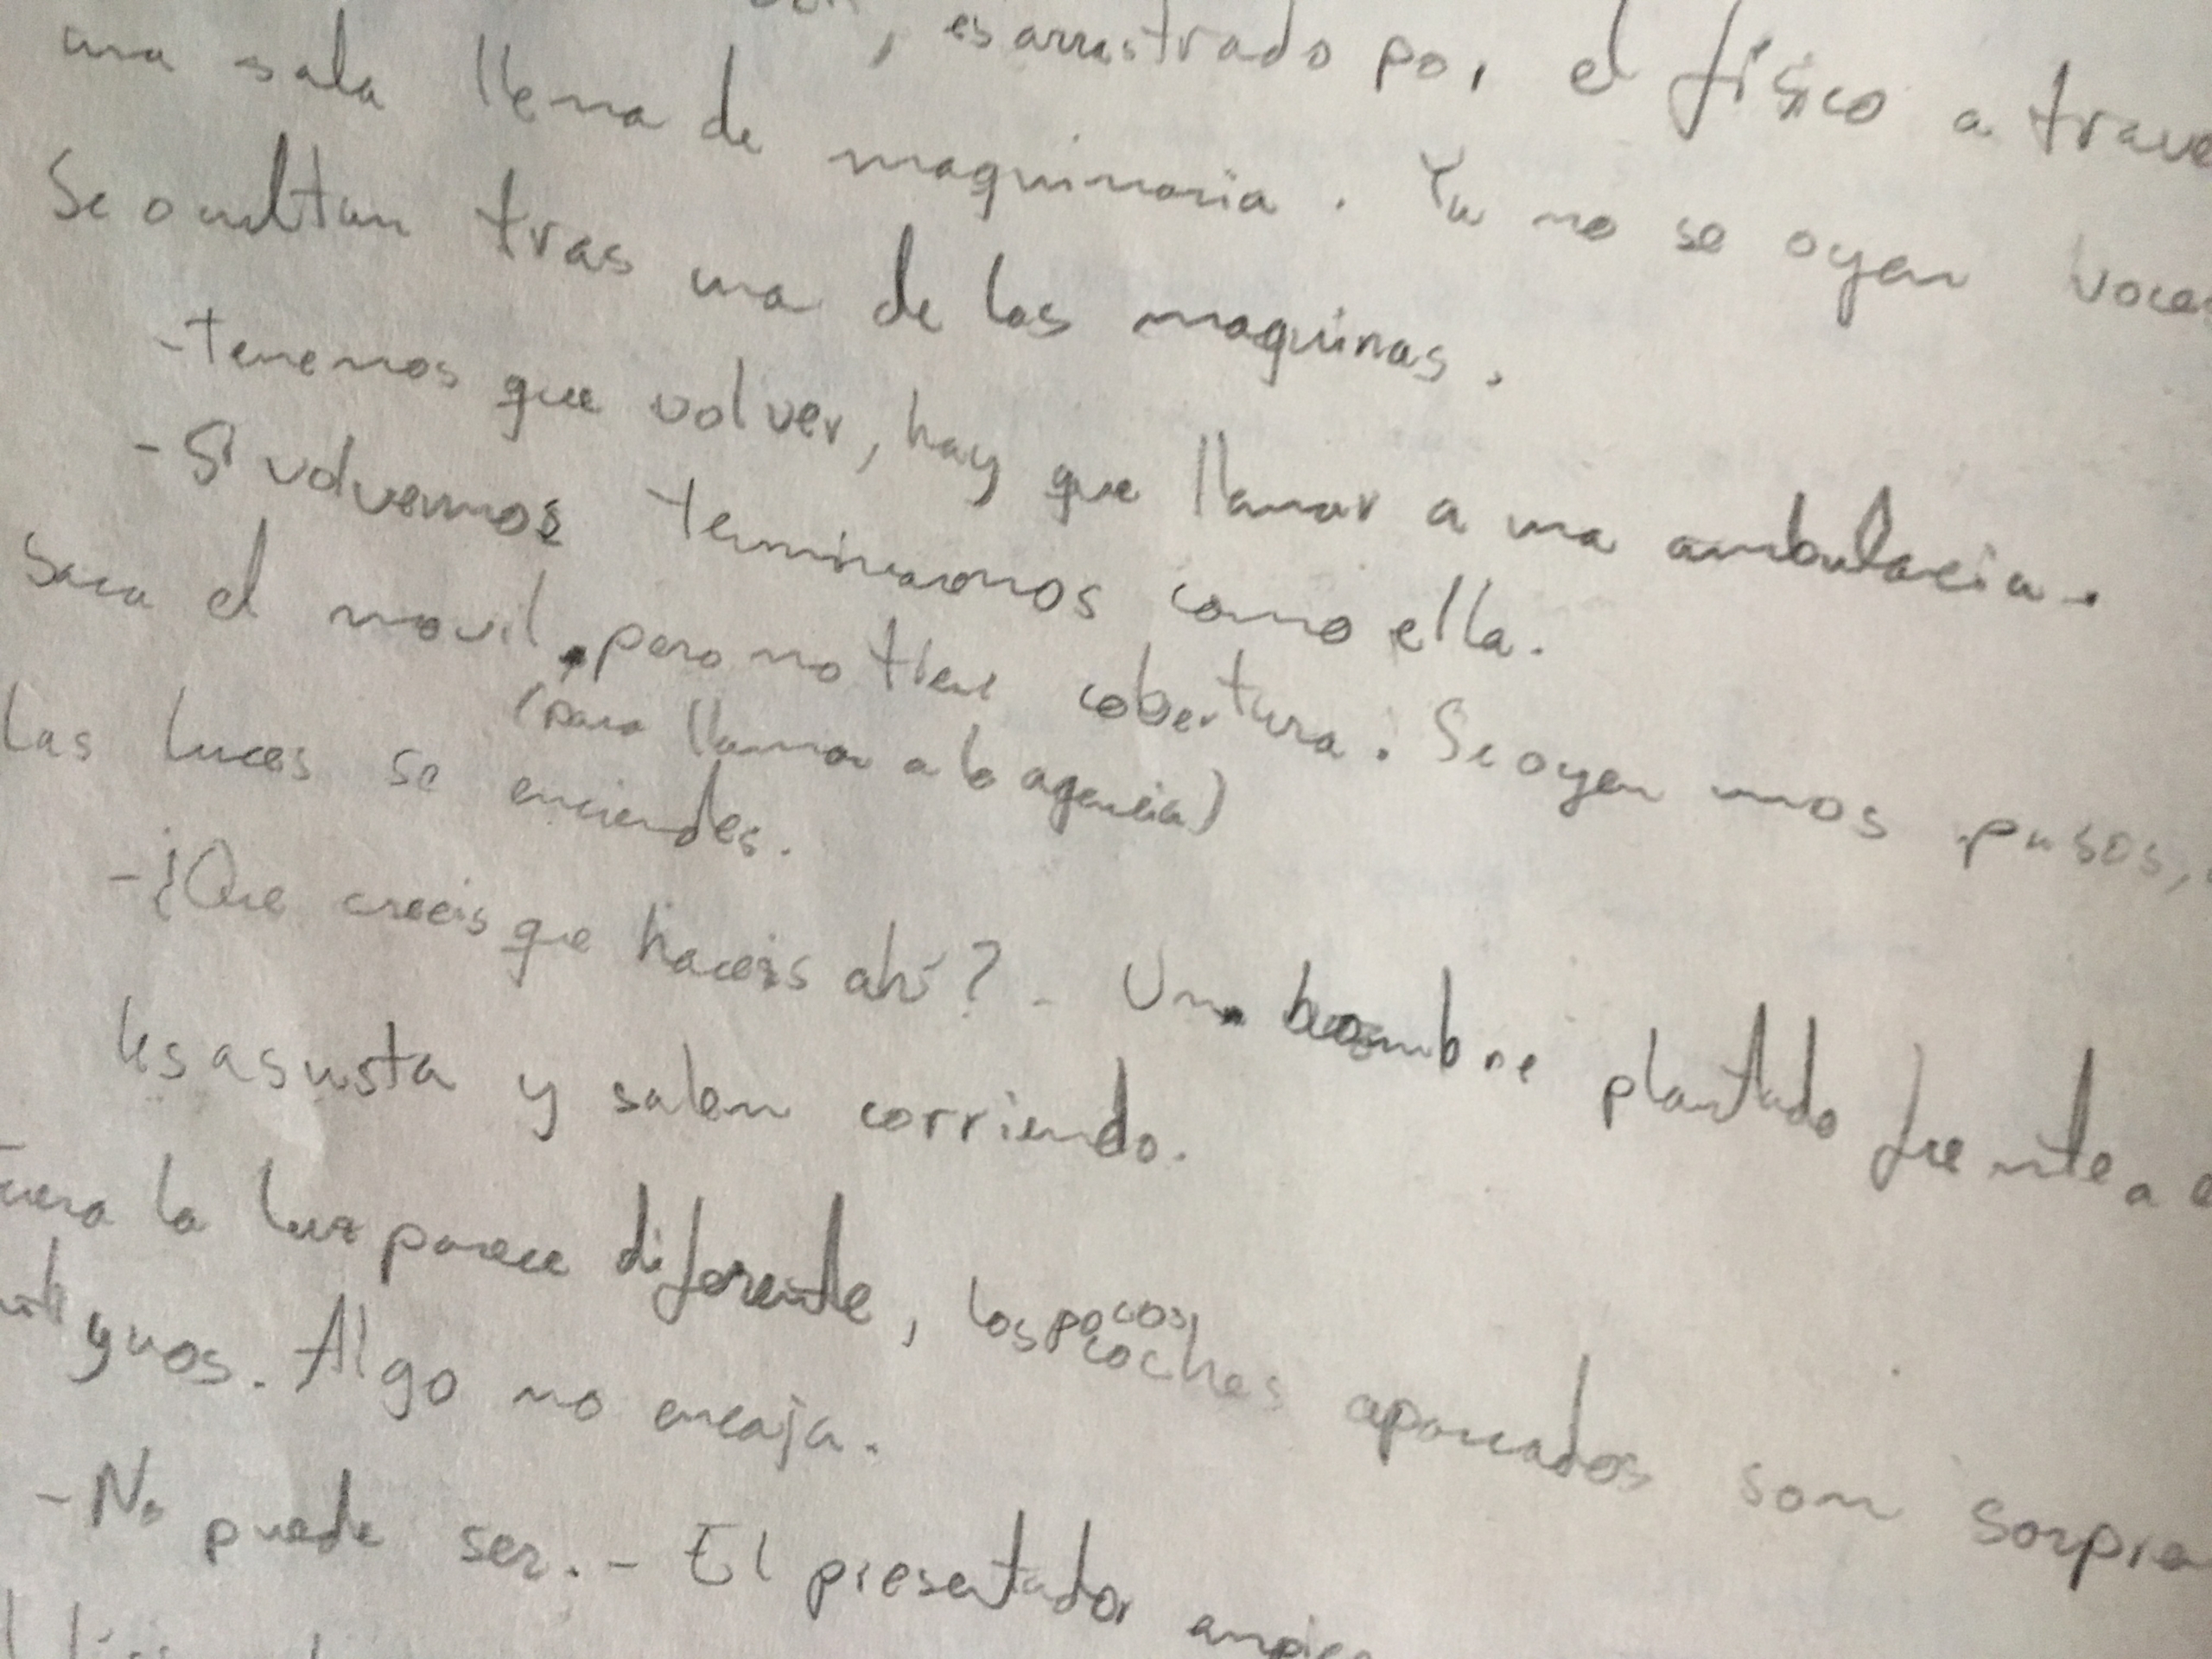 , es arrastrado por el físico a trave
una sala llena de maquinaria. Ya no se oyen voces
Se ocultan tras una de las maquinas.
-tenemos que volver, hay que llamar a una ambulacia.
-Si volvemos terminaremos como ella.
Saca el movil, pero no tiene cobertura. Se oyen unos pasos,
(para llamar a la agencia)
Las luces se enciendes.
-¿Que creeis que haceis ahí? - Un hombre plantado frente a e
les asusta y salen corriendo.
Fuera la luz parece diferente, los pocos coches aparcados son sorpre
antiguos. Algo no encaja.
-No puede ser. - El presentador empiez